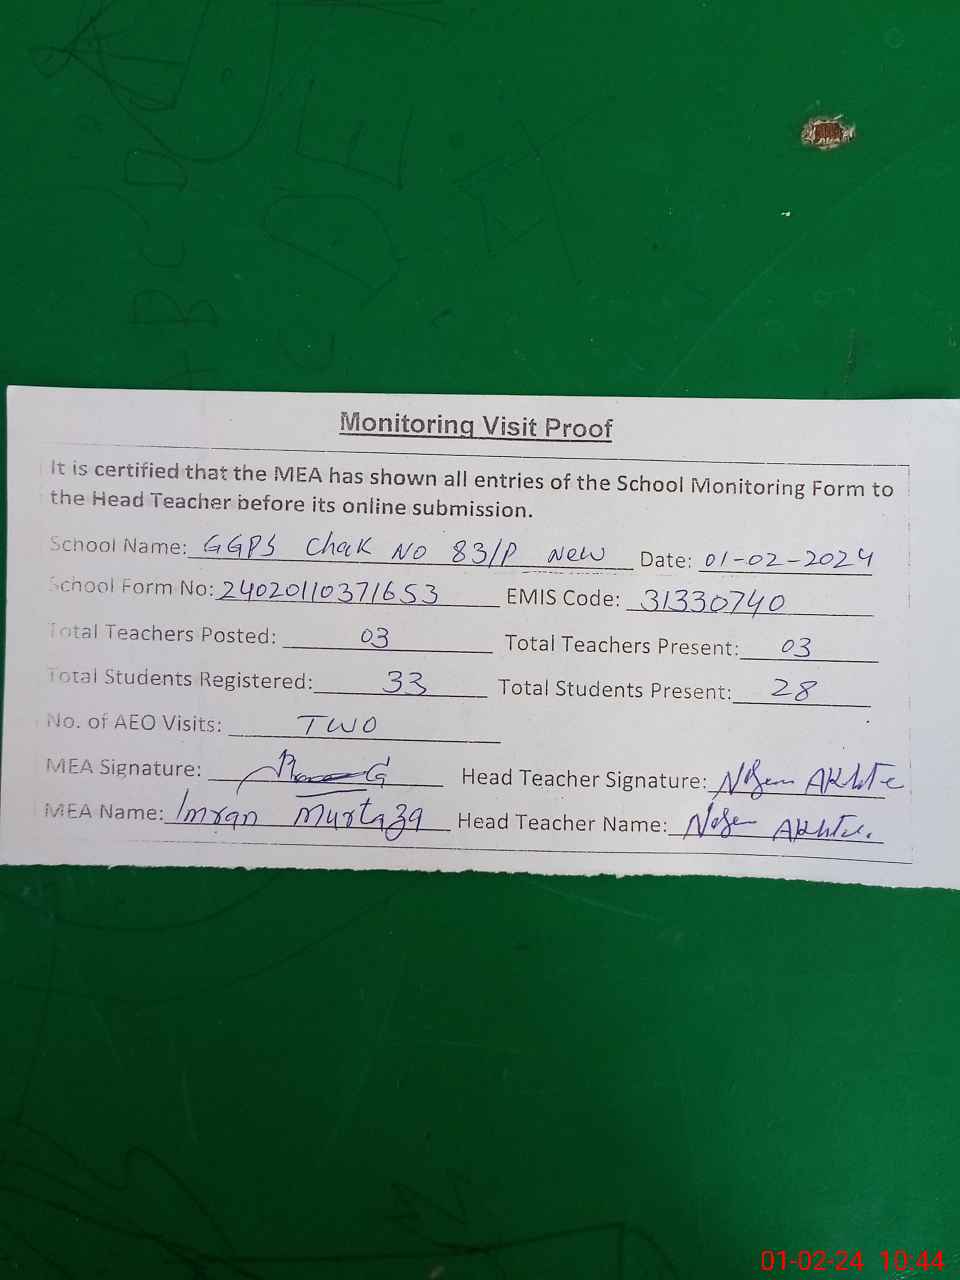 Monitoring Visit Proof
It is certified that the MEA has shown all entries of the School Monitoring Form to
the Head Teacher before its online submission.
School Name: GGPS Chak No 83/P New Date: 01-02-2024
School Form No: 24020110371653 EMIS Code: 31330740
Total Teachers Posted: 03 Total Teachers Present: 03
Total Students Registered: 33 Total Students Present: 28
No. of AEO Visits: TWO
MEA Signature: Head Teacher Signature:
MEA Name: Imran Murtaza Head Teacher Name:
01-02-24 10:44